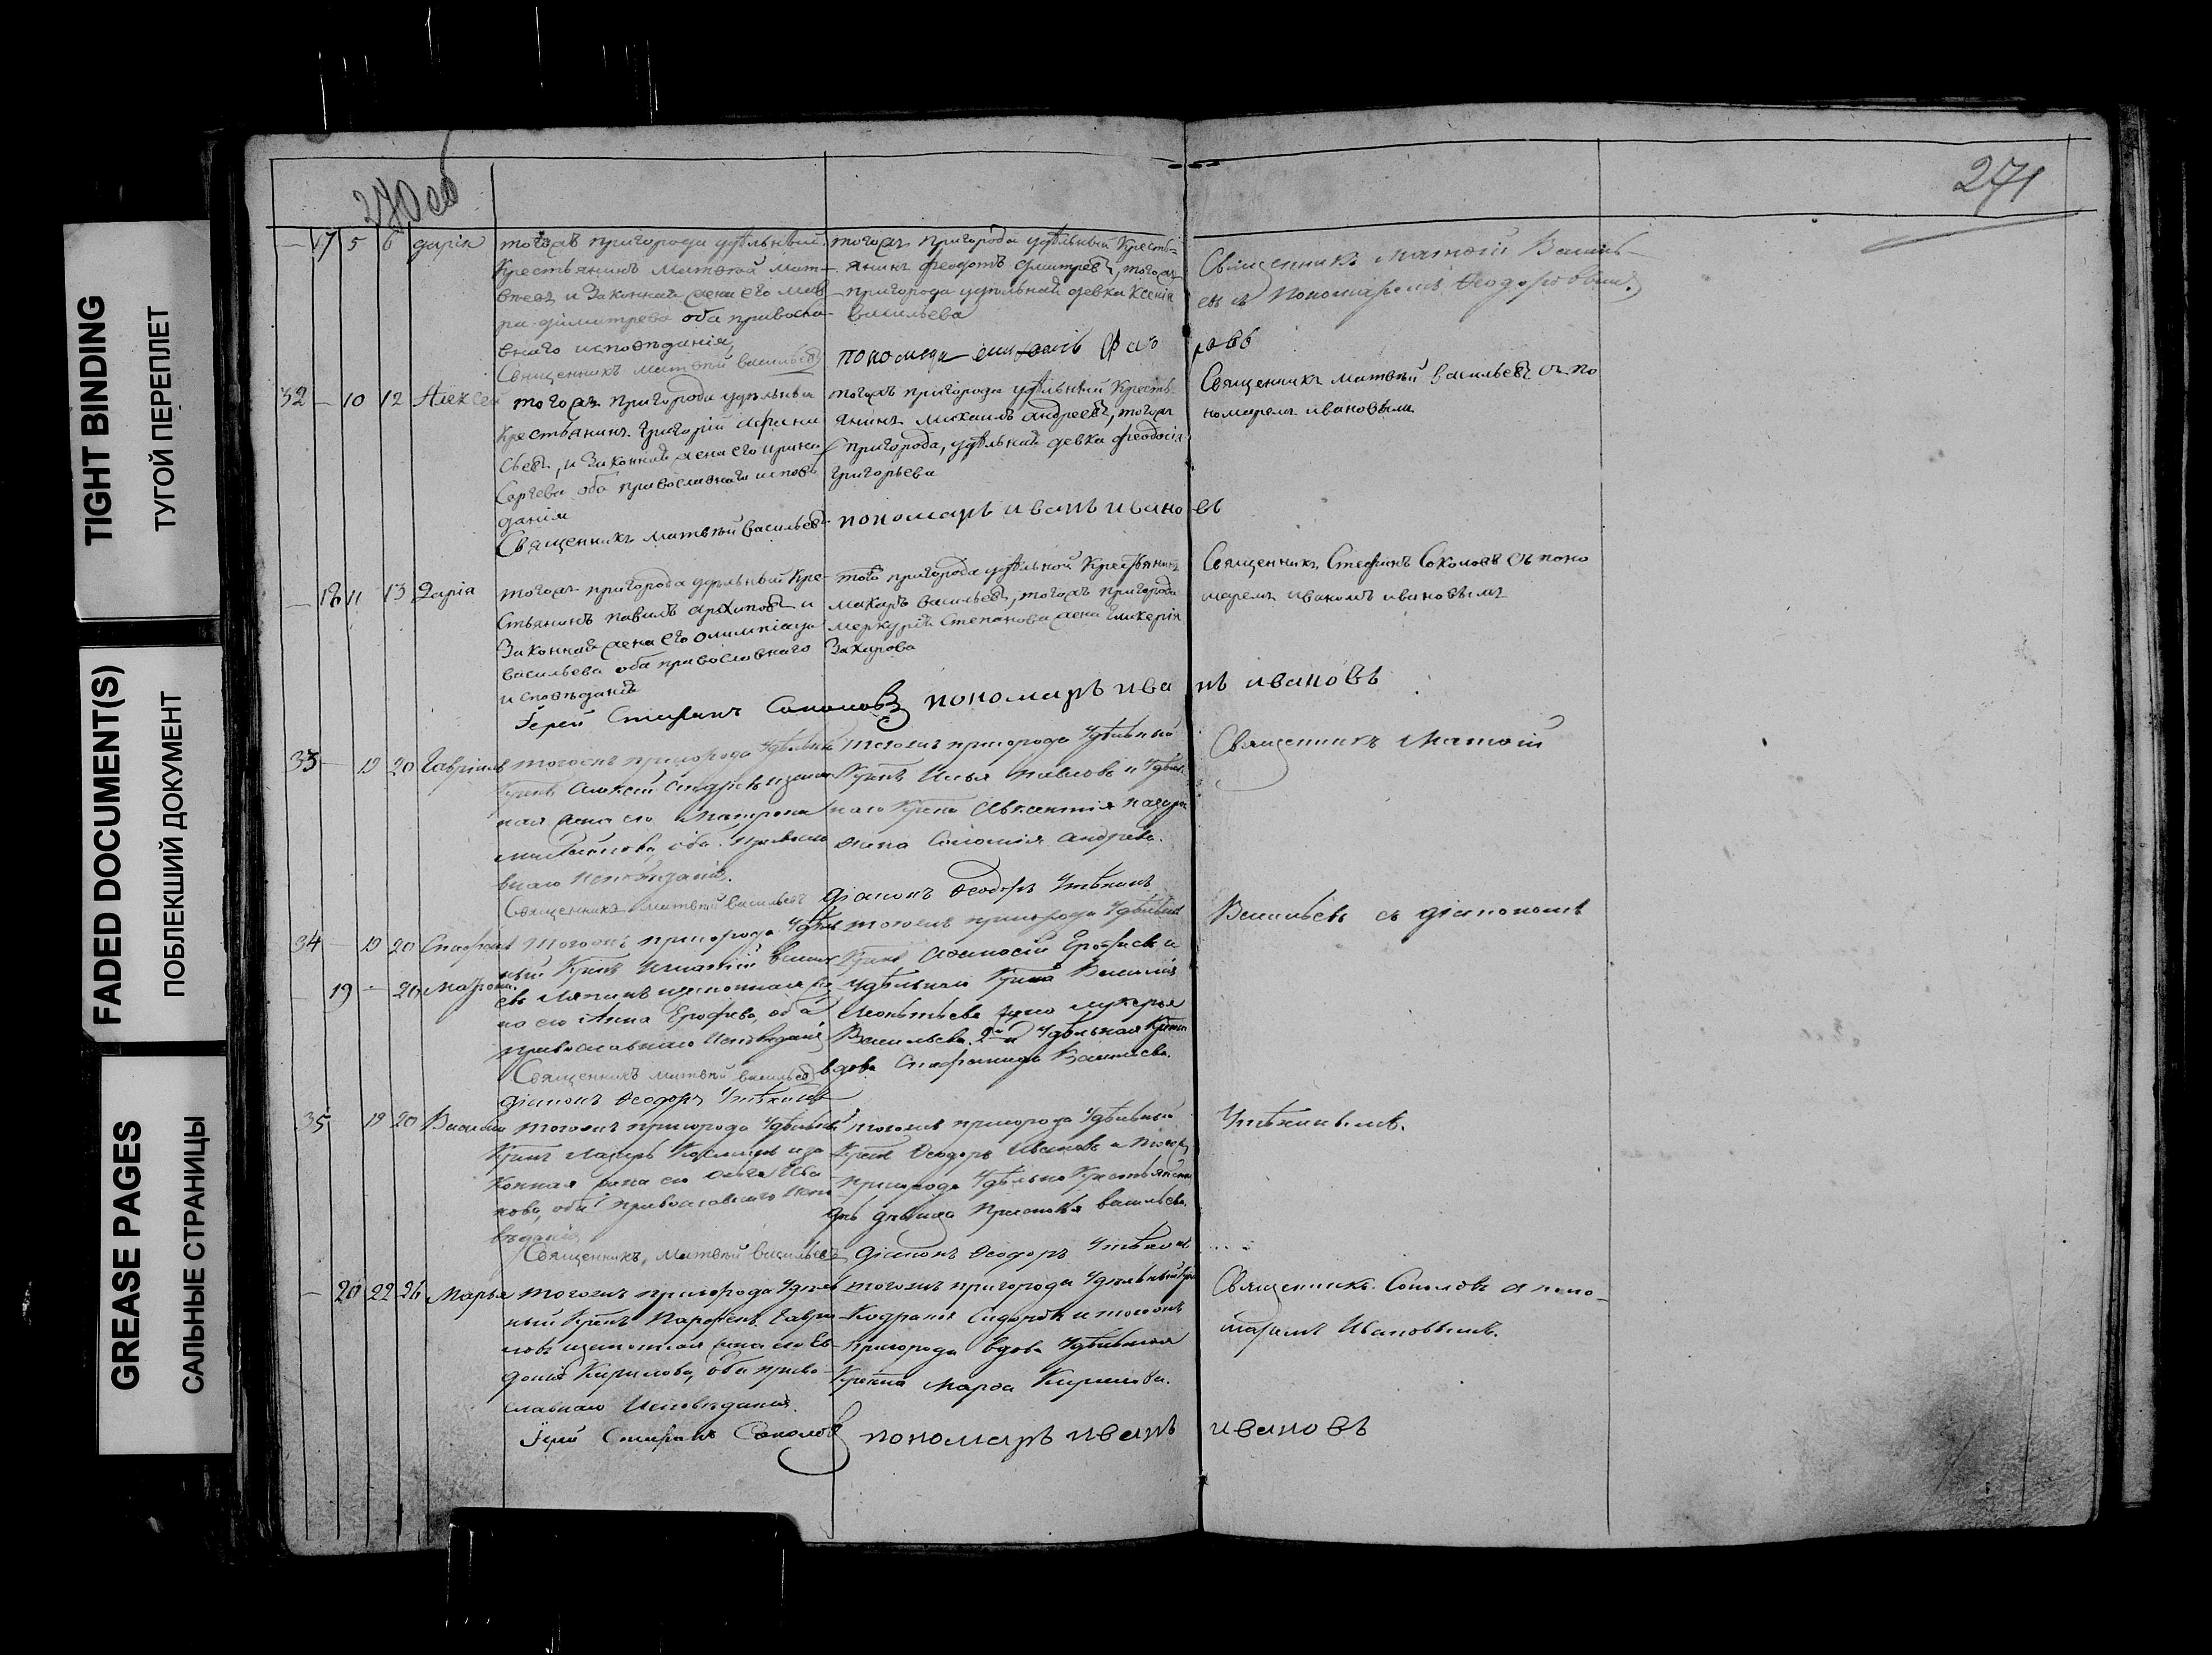 TIGHT BINDING
ТУГОЙ ПЕРЕПЛЕТ
FADED DOCUMENT(S)
ПОБЛЕКШИЙ ДОКУМЕНТ
GREASE PAGES
САЛЬНЫЕ СТРАНИЦЫ
270 об
271
17 5 6 дарія
тогожъ пригорода удѣльный
Крестьянинъ Матвѣй Мат-
вѣевъ и Законная жена его
димитрева оба правосла-
внаго исповѣданія
Священникъ матвѣй васильевъ
тогожъ пригорода удѣльный Кресть-
янинъ феодотъ дмитревъ, тогожъ
пригорода удѣльная девка Ксенія
васильева
Священникъ матвѣй Василь-
евъ съ Пономаремъ Ѳеодоровымъ
32 10 12 Алексей
тогожъ пригорода удѣльный
Крестьянинъ Григорій Афана
сьевъ, и Законная жена его ирина
Сергева оба православнаго исповѣ
данія
Священникъ матвѣй васильевъ
тогожъ пригорода удѣльный Кресть
янинъ михаилъ андреевъ, тогожъ
пригорода, удѣльная девка феодосія
григорьева
пономарь иванъ ивановъ
Священникъ матвѣй васильевъ съ по
номаремъ ивановымъ
18 11 13 Дарія
тогожъ пригорода удѣльный Кре-
стьянинъ павилъ архиповъ и
Законная жена его олимпіада
васильева оба православнаго
исповѣданія
Іерей Стефанъ Соколовъ
того пригорода удѣльной Крестьянинъ
макаръ васильевъ, тогожъ пригорода
меркурія Степанова жена Гликерія
Захарова
пономарь иванъ ивановъ
Священникъ Стефанъ Соколовъ съ поно
маремъ иваномъ ивановымъ
33 19 20 Гавріилъ
тогожъ пригорода Удѣльный
Крнъ Алексей Сидоровъ и закон
ная жена его Матрона
Михайлова, оба Правосла
внаго Исповѣданія.
Священникъ матвѣй васильевъ
тогожъ пригорода Удѣльный
Крнъ Илья Павловъ и Удѣль
наго Крна Авксентія
жена Соломія Андрева.
діаконъ Ѳеодоръ Утѣхинъ
Священникъ Матвѣй
34 19 20 Стефанъ
19 20 Матрона
тогожъ пригорода Удѣль
ный Крнъ Игнатій Василь
евъ и законная же
на его Анна Ерофева, оба
православнаго Исповѣданія
Священникъ матвѣй васильевъ
діаконъ Ѳеодоръ Утѣхинъ
тогожъ пригорода Удѣльный
Крнъ Аѳанасій Ерофеевъ и
Удѣльнаго Крна Василія
Леонтьева жена Лукерья
Васильева. 2й Удѣльная
вдова Стефанида Васильева.
Васильевъ съ діакономъ
35 19 20 Василій
тогожъ пригорода Удѣльный
Крнъ Лазарь Козминъ и за
конная жена его Ольга Ива
нова, оба православнаго Испо
вѣданія
Священникъ матвѣй васильевъ
тогожъ пригорода Удѣльный
Крнъ Ѳеодоръ Ивановъ и тогожъ
пригорода Удѣльно
девица васильева.
діаконъ Ѳеодоръ Утѣхинъ
Утѣхинымъ.
20 22 26 Марья
тогожъ пригорода Удѣль
ный Крнъ Парфенъ Гаври
ловъ и законная жена его Ев
докія Кирилова, оба право
славнаго Исповѣданія.
Іерей Стефанъ Соколовъ
тогожъ пригорода Удѣльный
Кодратъ Сидоровъ и тогожъ
пригорода вдова Удѣльная
Марѳа Кирилова.
пономарь иванъ ивановъ
Священникъ Соколовъ съ поно-
маремъ Ивановымъ.